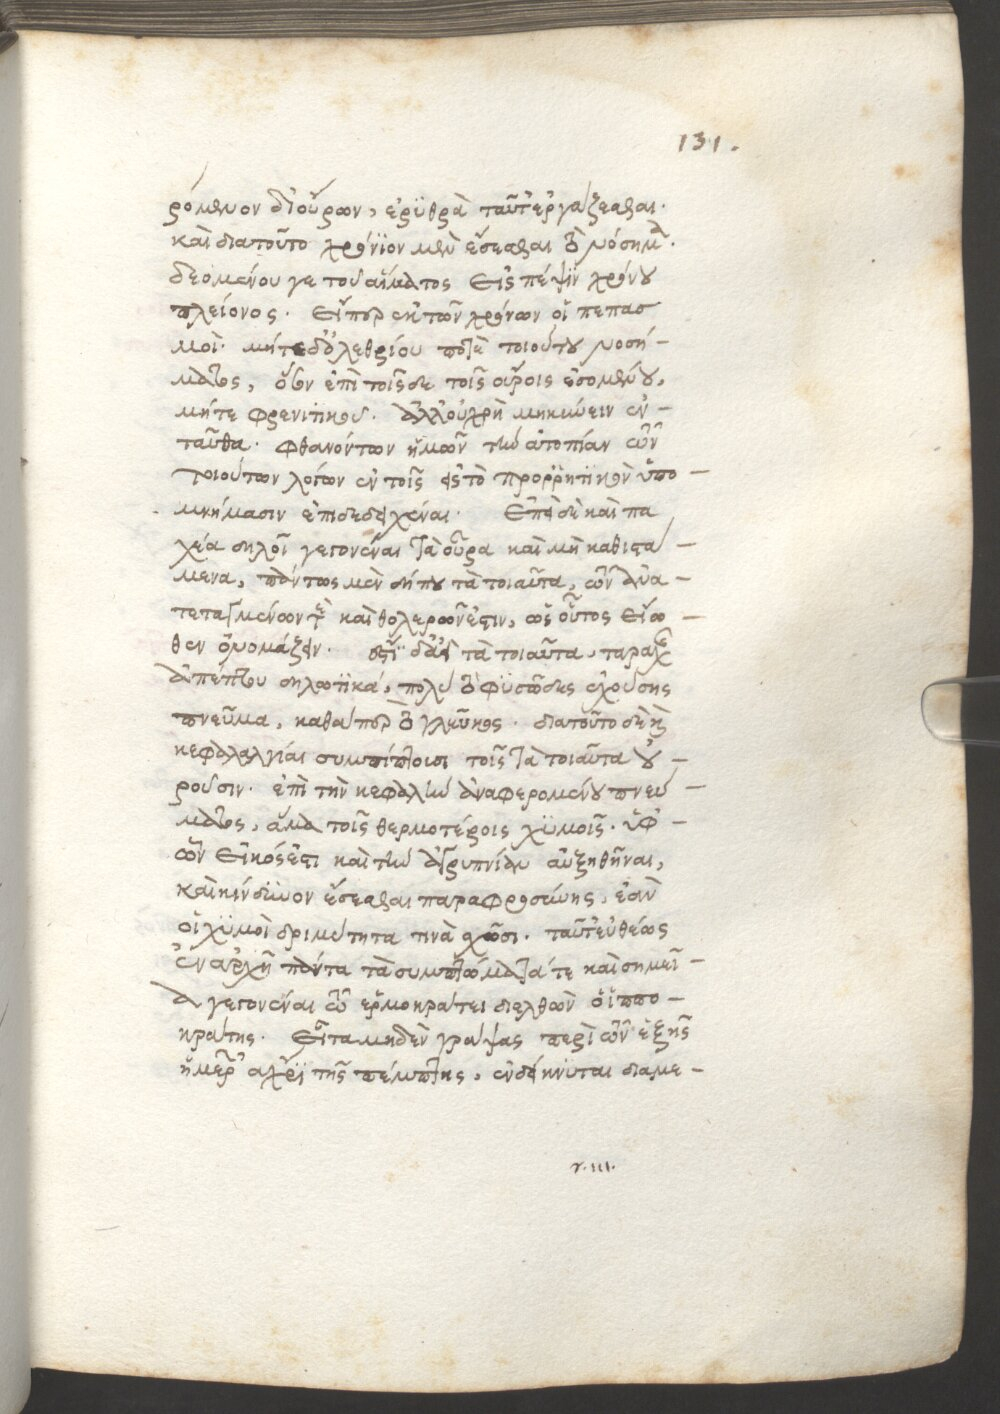 131.
ρόμενον δι' οὔρων, ἐρυθρὰ ταῦτ' ἐργάζεσθαι.
καὶ διατοῦτο χρόνιον μὲν ἔσεσθαι τὸ νόσημα.
δεομένου γε τοῦ αἵματος εἰς πέψιν χρόνου
πλείονος. εἴπερ ἐκ τῶν χρόνων οἱ πεπασ
μοί. μήτε δ' ὀλεθρίου ποτὲ τοιούτου νοσή–
ματος, ἐπὶ τοῖσδε τοῖς οὔροις ἐσομένου,
μήτε φρενιτικοῦ. ἀλλ' οὐ χρὴ μηκύνειν ἐν–
ταῦθα. φθανόντων ἡμῶν τὴν ἀτοπίαν τῶν
τοιούτων λόγων ἐν τοῖς εἰς τὸ προρρητικὸν ὑπο–
μνήμασιν ἐπιδεδειχέναι. ἐπεὶ δὲ καὶ πα
χέα δηλοῖ γεγονέναι τὰ οὖρα καὶ μὴ καθιστά–
μενα, πάντως μὲν δήπου τὰ τοιαῦτα, τῶν ἀνα–
τεταραγμένων τε καὶ θολερῶν ἐστιν, ὡς οὗτος εἴω–
θεν ὀνομάζειν. ἐστὶ δ' ἀεὶ τὰ τοιαῦτα, ταραχῆς
ἀπέπτου δηλωτικά, πολὺ τὸ φυσῶδες ἐχούσης
πνεῦμα, καθάπερ τὸ γλεῦκος. διατοῦτο δὲ καὶ
κεφαλαλγίαι συμπίπτουσι τοῖς τὰ τοιαῦτα οὐ–
ροῦσιν. ἐπὶ τὴν κεφαλὴν ἀναφερομένου πνεύ–
ματος, ἅμα τοῖς θερμοτέροις χυμοῖς. ὑφ'–
ὧν εἰκός ἐστι καὶ τὴν ἀγρυπνίαν αὐξηθῆναι,
καὶ κίνδυνον ἔσεσθαι παραφροσύνης, ἐὰν
οἱ χυμοὶ δριμύτητά τινα σχῶσι. ταῦτ' εὐθέως
ἐν ἀρχῇ πάντα τὰ συμπτώματά τε καὶ σημεῖ–
α γεγονέναι τῷ ἑρμοκράτει διελθὼν ὁ ἱππο–
κράτης. εἶτα μηδὲν γράψας περὶ τῶν ἑξῆς
ἡμερῶν ἄχρι τῆς πέμπτης, ἐνδείκνυται διαμε–
r.iii.